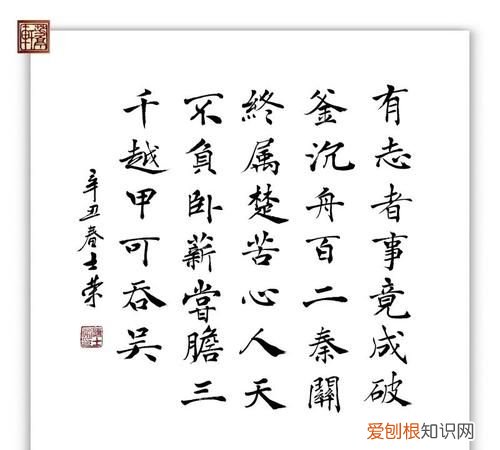 有志者事竟成破
釜沉舟百二秦關
終属楚苦心人天
不負卧薪嘗膽三
千越甲可吞吴
辛丑春士荣
爱刨根知识网